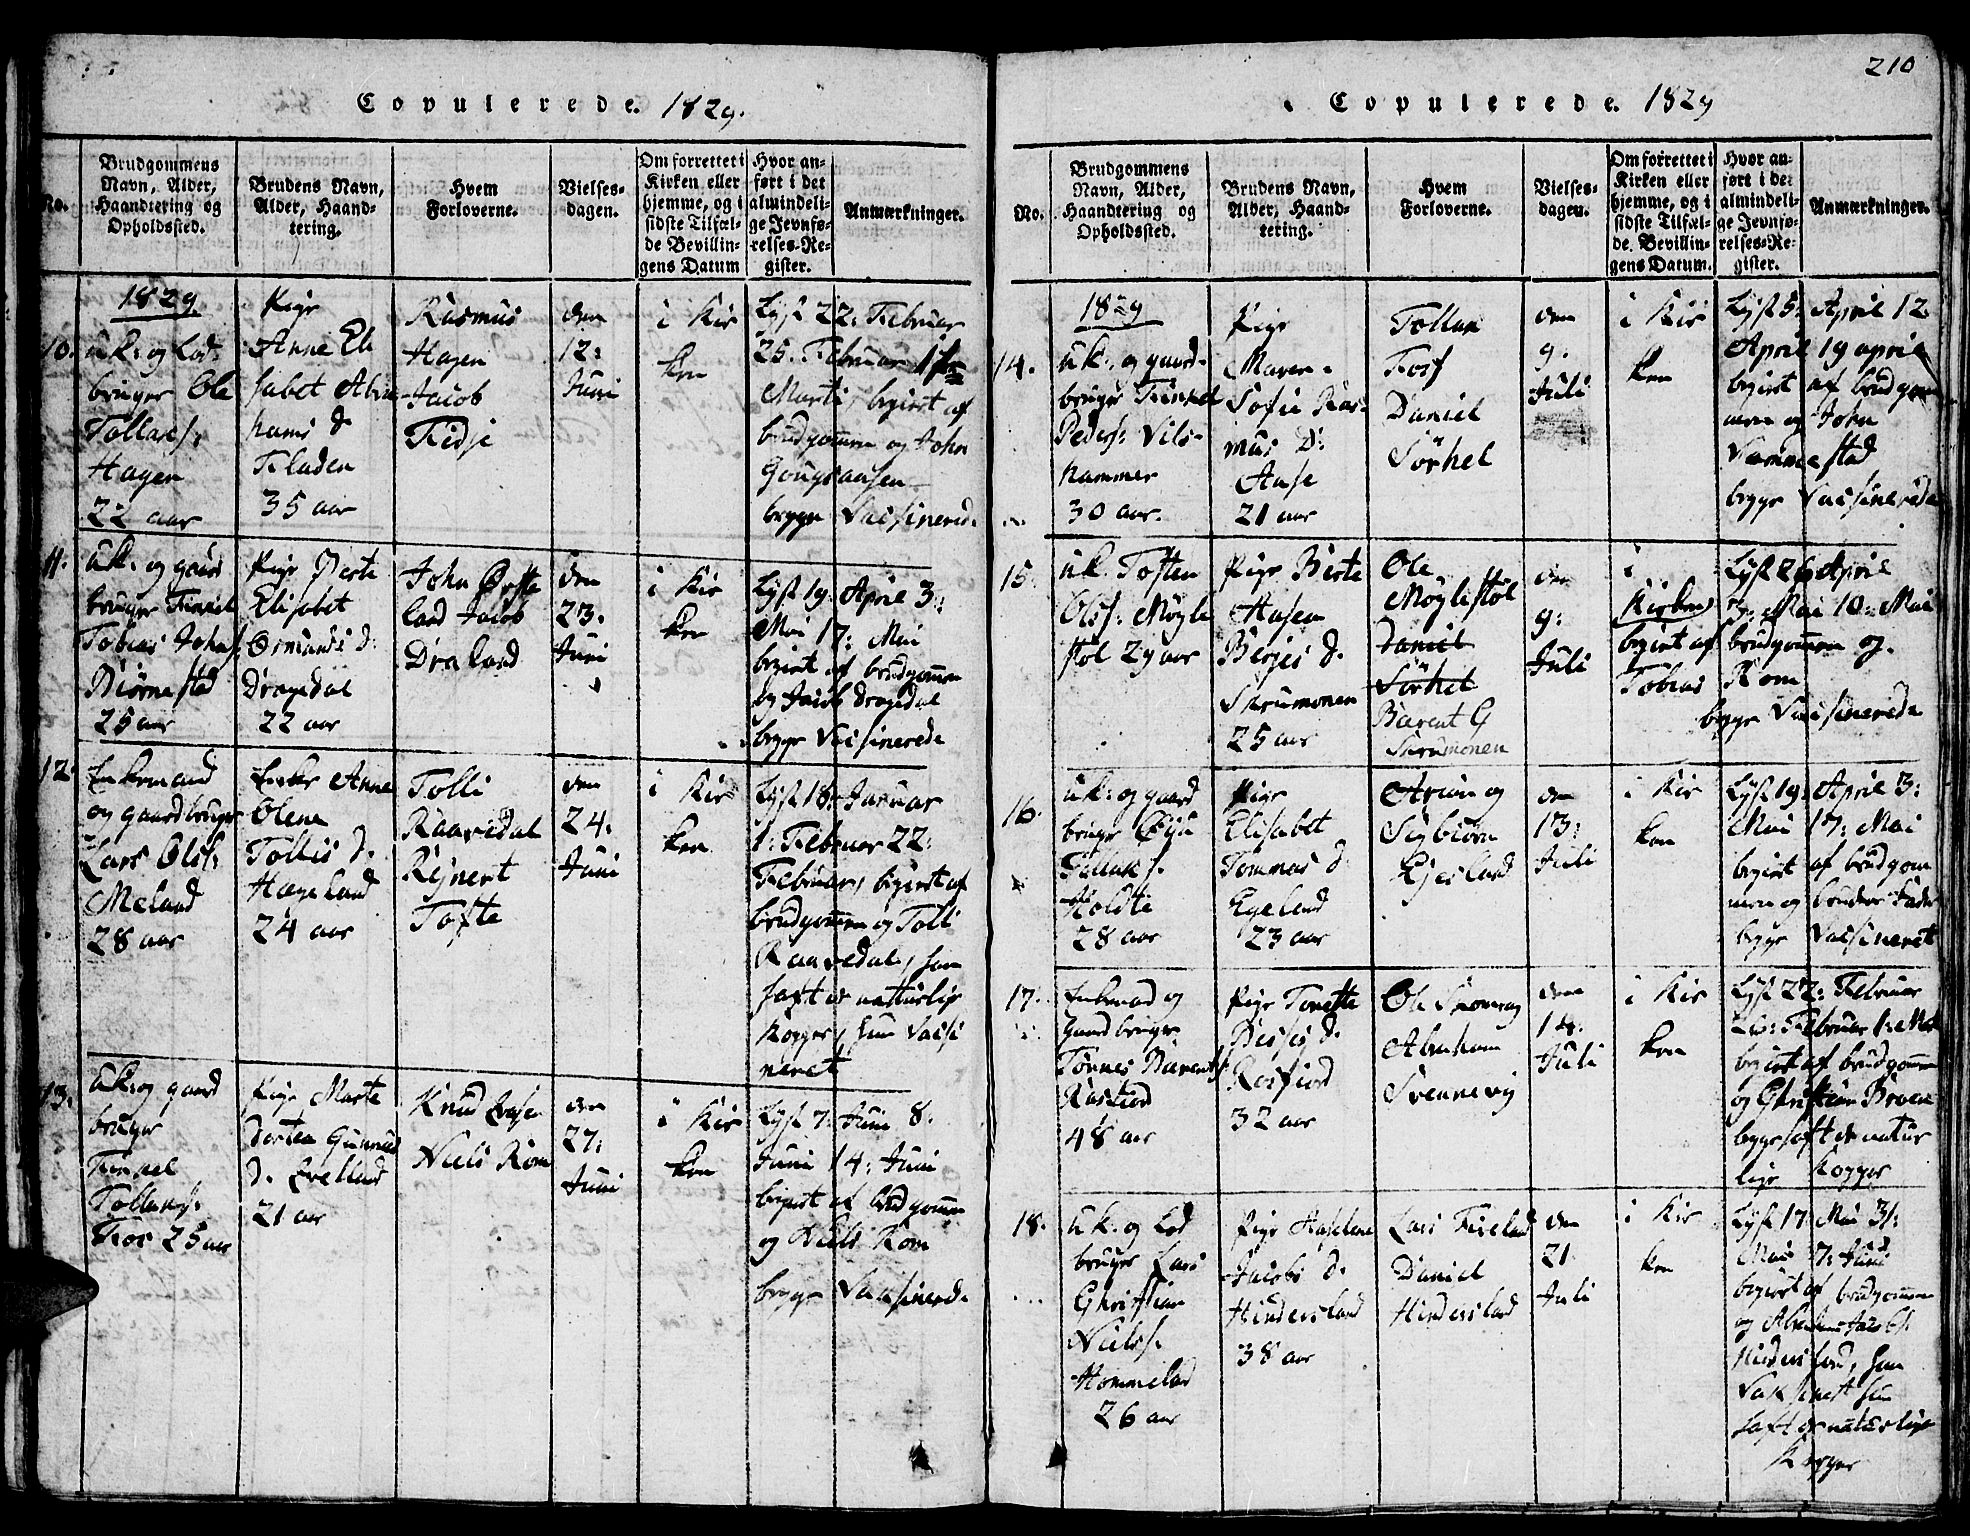 Copulerede. 1829.
No.
Brudgommens
Navn, Alder,
Haandtering og
Opholdssted.
Brudens Navn,
Alder, Haand-
tering.
Hvem
Forloverne.
Vielses-
dagen.
Om forrettet i
Kirken eller
hjemme, og i
sidste Tilfæl-
de Bevillin-
gens Datum
Hvor an-
ført i det
almindeli-
ge Jevnfø-
relses-Re-
gister.
Anmærkninger.
1829.
10.
uk: og Lod-
bruger Ole
Tollafs:
Hagen
22 aar
Pige
Anne Eli
sabet Abra
hams d.
Fladen
35 aar
Rasmus
Hagen
Jacob
Fidje
den
12:
Juni
i Kir
ken
Lyst 22: Februar
25. Februar 1ste
Marti, begiert af
brudgommen og John
begge Vaksinerede
11.
uk: og gaard
bruger Finkel
Tobias Johns:
Biørnestad
25 aar
Pige Berte
Elisabet
Ormunds d:
Dragedal
22 aar
John Øvste
land Jacob
Draland
den
23.
Juni
i Kir
ken
Lyst 19: April 3:
Mai 17: Mai
begiert af brudgommen
og Jacob Dragedal
begge Vaksinerede
12.
Enkemand
og gaardbruger
Lars Ols:
Meland
28 aar
Enke Anne
Olene
Tollis d.
Hægeland
24 aar
Tolli
Raavedal
Rejnert
Tofte
den
24.
Juni
i Kir
ken
Lyst 18: Januar
1: Februar 22:
Februar, begiert af
brudgommen og Tolli
Raavedal, han
haft de natturlige
Kopper, hun Vaksi
neret
13.
uk: og gaard
bruger
Finkel
Tollaks:
Fos 25 aar
Pige Marte
Dortea Gunnuls
d. Qvelland
21 aar
Knud
Niels Rom
den
27:
Juni
i Kir
ken
Lyst 7: Juni 8.
Juni 14: Juni
begiert af brudgommen
og Niels Rom
begge Vaksinerede
210
Copulerede. 1829
No.
Brudgommens
Navn, Alder,
Haandtering og
Opholdssted.
Brudens Navn,
Alder, Haand-
tering.
Hvem
Forloverne.
Vielses-
dagen.
Om forrettet i
Kirken eller
hjemme, og i
sidste Tilfæl-
de Bevillin-
gens Datum.
Hvor an-
ført i det
almindeli-
ge Jevnfø-
relses-Re-
gister.
Anmærkninger.
1829
14.
uk: og gaard-
bruger Finkel
Peders: Vils-
hammer
30 aar.
Pige
Maren
Sofie Ras-
mus D:
Aase
21 aar
Tollak
Fos
Daniel
Sørhel
den
9.
Juli
i Kir
ken
Lyst 5: April 12.
April 19 april
begiert af brudgom
men og John
Vammestad
begge Vaksinerede
15.
uk. Tosten
Ols: Møgle
støl 29 aar
Pige Berte
Aasen
Berges d.
Skrumonen
25 aar
Ole
Møglestøl
Daniel
Sørhel
Bærent G
Skrumonen
den
9:
Juli
i
Kirken
Lyst 26 April
3: Mai 10: Mai
begiert af brudgommen og
Tobias Rom
begge Vaksinerede
16.
uk: og gaard
bruger
Tallaks:
Holdte
28 aar
Pige
Elisabet
Tommas d:
Egeland
23 aar
og
Sigbiørn
Egeland
den
13:
Juli
i Kir
ken
Lyst 19: April 3:
Mai 17: Mai
begiert af brudgom
men og brudens Fader
begge Vaksineret
17.
Enkemand og
Gaardbruger
Tønnes Bærents:
Rosfiord
48 aar
Pige Tonette
Berges d.
Rosfiord
32 aar
Ole
Abraham
Svennevig
den
18.
Juli
i Kir
ken
Lyst 22: Februar
Februar 1: Mat
begiert af brudgommen
og Christian Broen
begge haft de natur
lige Kopper
18.
uk: og Lod
bruger Lars
Christian
Niels:
Hommeland
26 aar
Pige Haslene
Jacobs d.
Hindersland
38 aar
Lars Fiseland
Daniel
Hindersland
den
21.
Juli
i Kir
ken
Lyst 17: Mai 31:
Mai 7: Juni
begiert af brudgommen
og Abraham Jacobs:
Hindersland, han
Vaksineret hun
haft de naturlige
Kopper